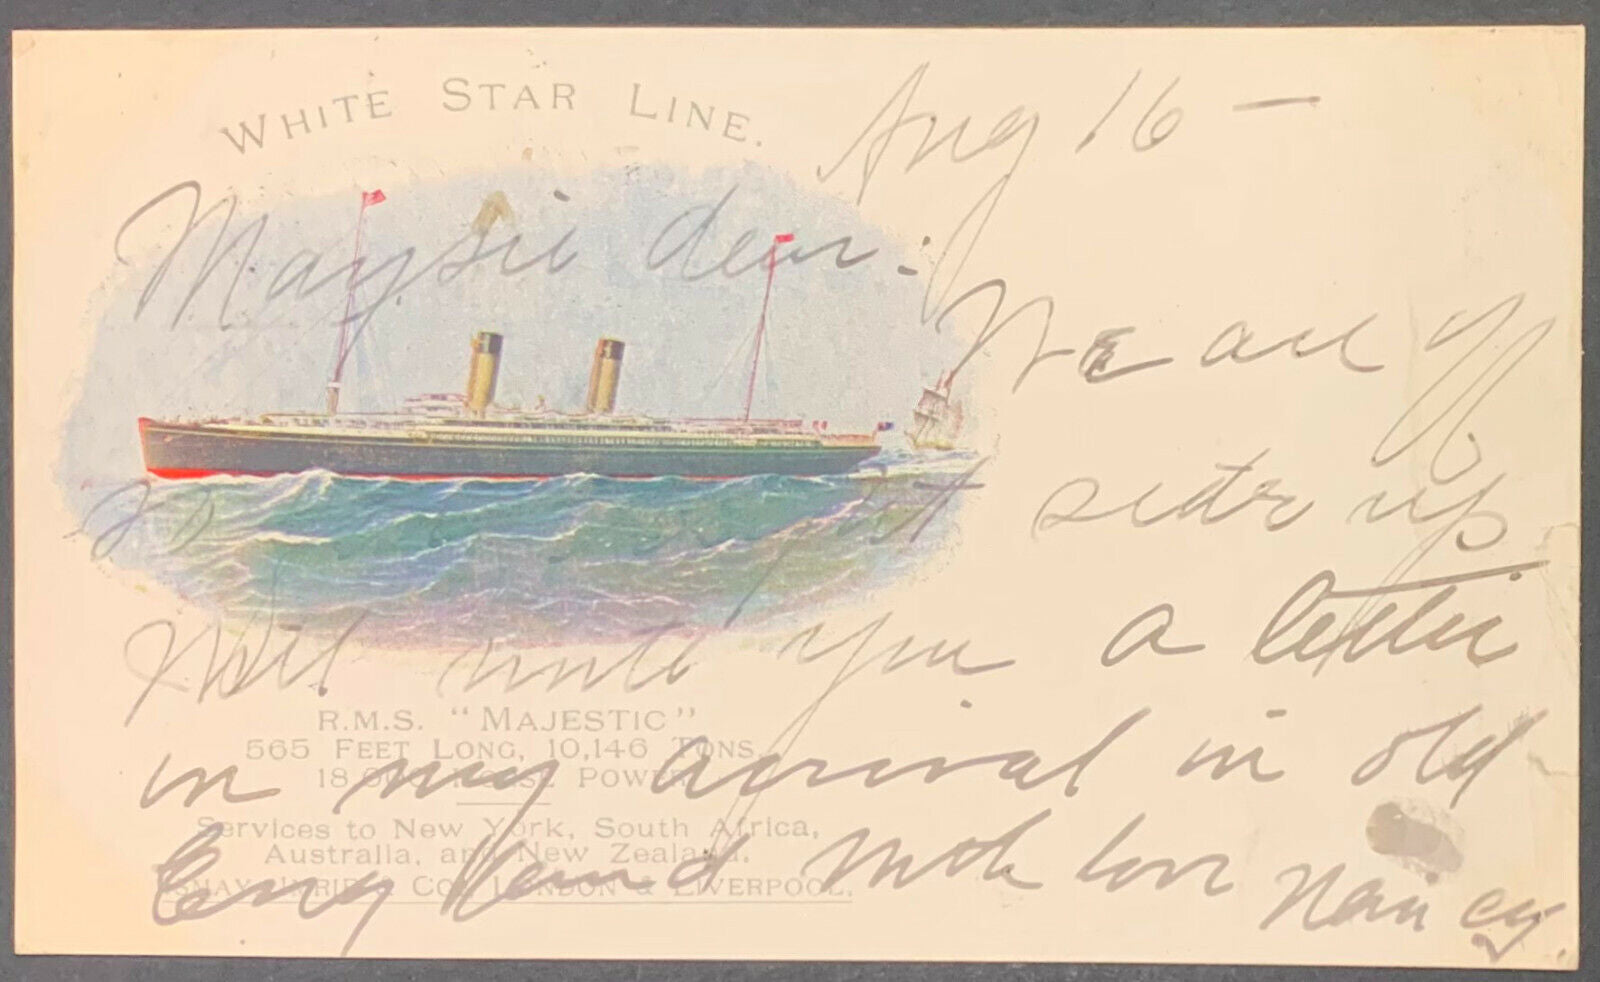 WHITE STAR LINE.
Aug 16 —
Maysie dear.
We are
setter up
Will write you a letter
on my arrival in old
England Much love Nancy.
R.M.S. "MAJESTIC"
565 FEET LONG, 10,146 TONS,
18,000 HORSE POWER.
Services to New York, South Africa,
Australia, and New Zealand.
ISMAY, IMRIE & CO., LONDON & LIVERPOOL.